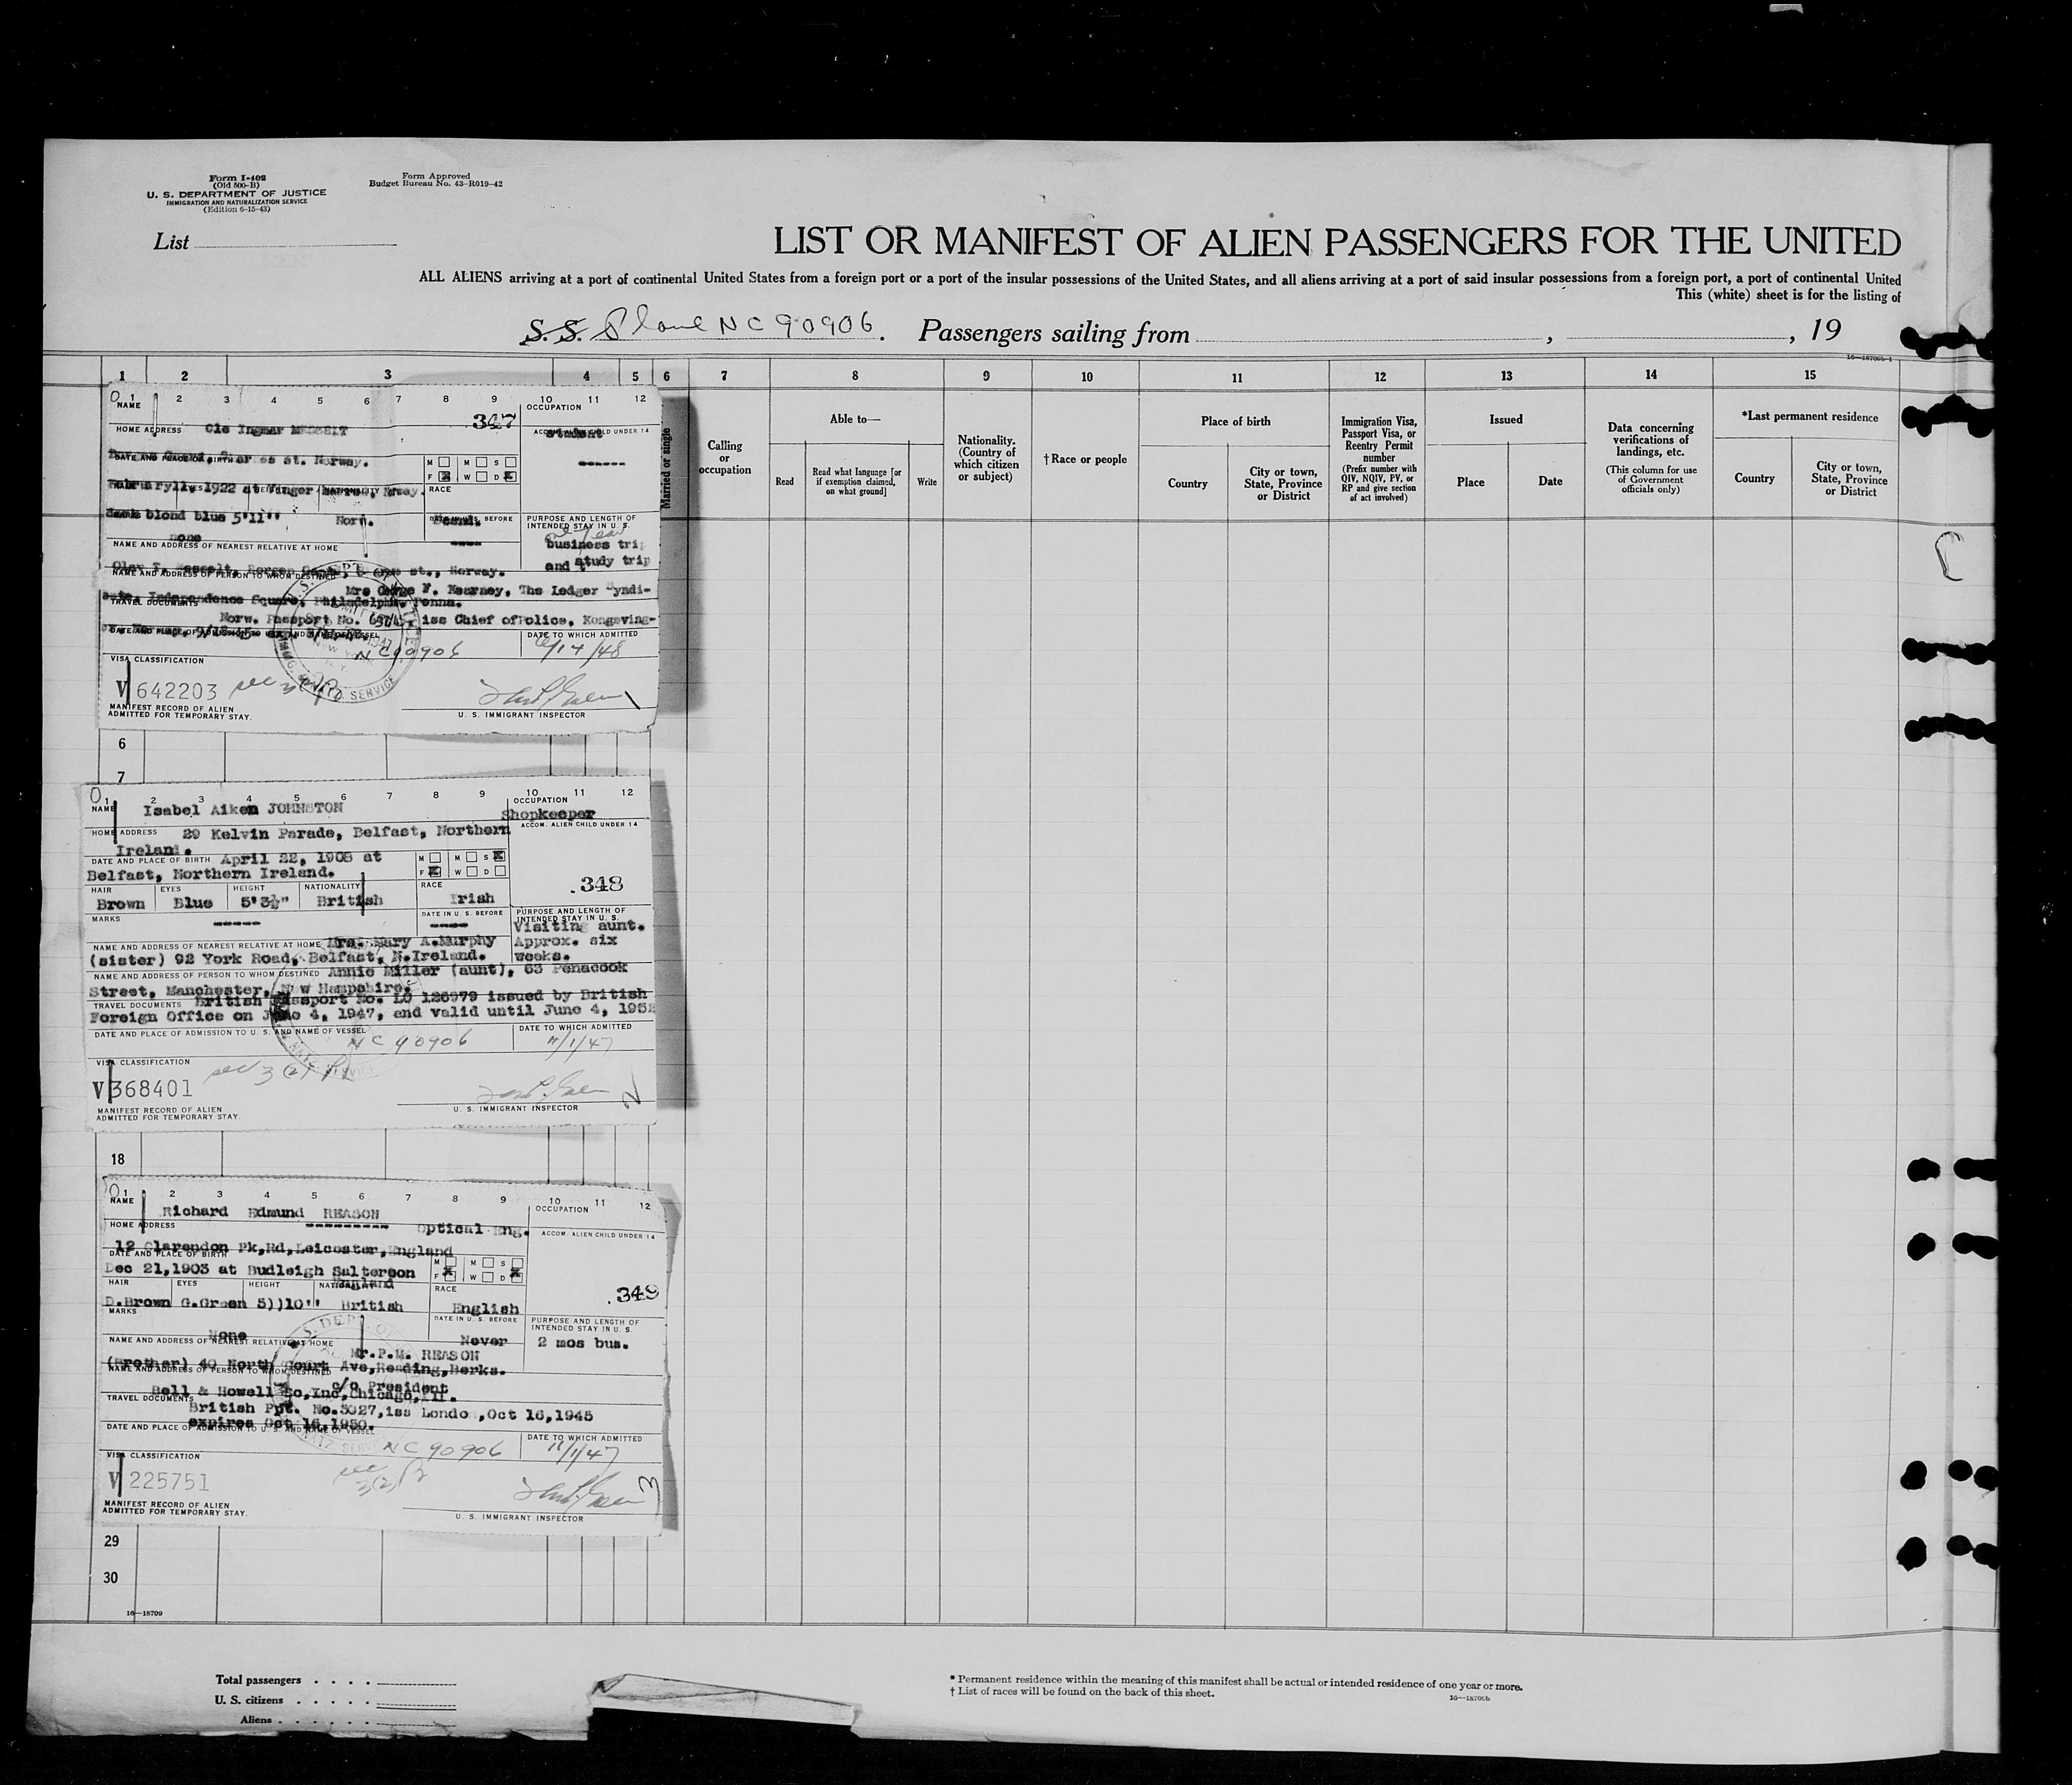 Form I-402
(Old 500-B)
U. S. DEPARTMENT OF JUSTICE
IMMIGRATION AND NATURALIZATION SERVICE
(Edition 6-15-43)
Form Approved
Budget Bureau No. 43-R019-42
List
LIST OR MANIFEST OF ALIEN PASSENGERS FOR THE UNITED
ALL ALIENS arriving at a port of continental United States from a foreign port or a port of the insular possessions of the United States, and all aliens arriving at a port of said insular possessions from a foreign port, a port of continental United
This (white) sheet is for the listing of
S. S. Plane NC 90906. Passengers sailing from , , 19
16—18709b-1
1 2 3 4 5 6 7 8 9 10 11 12 13 14 15
Married or single
Calling or occupation
Able to—
Read
Read what language [or if exemption claimed, on what ground]
Write
Nationality. (Country of which citizen or subject)
†Race or people
Place of birth
Country
City or town, State, Province or District
Immigration Visa, Passport Visa, or Reentry Permit number
(Prefix number with QIV, NQIV, PV, or RP and give section of act involved)
Issued
Place
Date
Data concerning verifications of landings, etc.
(This column for use of Government officials only)
*Last permanent residence
Country
City or town, State, Province or District
0 1 2 3 4 5 6 7 8 9 10 11 12
NAME
347
OCCUPATION
HOME ADDRESS
Ole Ingmar
student
ACCOM. ALIEN CHILD UNDER 14
st. Norway.
DATE AND PLACE OF BIRTH
M M S
F W D
1922 at Vinger
RACE
blond blue 5'11'' Norw. Scand.
PURPOSE AND LENGTH OF INTENDED STAY IN U. S.
one year
none
business trip
and study trip
NAME AND ADDRESS OF NEAREST RELATIVE AT HOME
st., Norway.
NAME AND ADDRESS OF PERSON TO WHOM DESTINED
Mrs George F. Kearney, The Ledger Syndi-
cate, Independence Square, Philadelphia Penna.
TRAVEL DOCUMENTS
Norw. Passport No. iss Chief ofPolice, Kongsving-
DATE AND PLACE OF ADMISSION TO U. S. AND NAME OF VESSEL
NC 90906
DATE TO WHICH ADMITTED
6/14/48
VISA CLASSIFICATION
V 642203 sec 3(2)
MANIFEST RECORD OF ALIEN
ADMITTED FOR TEMPORARY STAY.
U. S. IMMIGRANT INSPECTOR
1
6
7
0 1 2 3 4 5 6 7 8 9 10 11 12
NAME Isabel Aiken JOHNSTON
OCCUPATION
Shopkeeper
HOME ADDRESS 29 Kelvin Parade, Belfast, Northern
Ireland.
ACCOM. ALIEN CHILD UNDER 14
DATE AND PLACE OF BIRTH April 22, 1908 at
Belfast, Northern Ireland.
M M S
F W D
.348
HAIR EYES HEIGHT NATIONALITY RACE
Brown Blue 5'3½" British Irish
MARKS -----
DATE IN U. S. BEFORE
----
PURPOSE AND LENGTH OF INTENDED STAY IN U. S.
Visiting aunt.
Approx. six
weeks.
NAME AND ADDRESS OF NEAREST RELATIVE AT HOME Mrs. Mary A.Murphy
(sister) 92 York Road, Belfast, N.Ireland.
NAME AND ADDRESS OF PERSON TO WHOM DESTINED Annie Miller (aunt), 63 Penacook
Street, Manchester, New Hampshire.
TRAVEL DOCUMENTS British Passport No. LO 126979 issued by British
Foreign Office on June 4, 1947, and valid until June 4, 1952
DATE AND PLACE OF ADMISSION TO U. S. AND NAME OF VESSEL
NC 90906
DATE TO WHICH ADMITTED
11/1/47
VISA CLASSIFICATION
V 368401 sec 3(2)
MANIFEST RECORD OF ALIEN
ADMITTED FOR TEMPORARY STAY.
U. S. IMMIGRANT INSPECTOR
2
18
0 1 2 3 4 5 6 7 8 9 10 11 12
NAME
Richard Edmund REASON
OCCUPATION
HOME ADDRESS
Optical Eng.
ACCOM. ALIEN CHILD UNDER 14
12 Clarendon Pk,Rd,Leicester,England
DATE AND PLACE OF BIRTH
Dec 21,1903 at Budleigh Salterson
England
M M S
F W D
.349
HAIR EYES HEIGHT NATIONALITY RACE
D.Brown G.Green 5))10'' British English
MARKS
None
DATE IN U. S. BEFORE
Never
PURPOSE AND LENGTH OF INTENDED STAY IN U. S.
2 mos bus.
NAME AND ADDRESS OF NEAREST RELATIVE AT HOME
Mr.P.M. REASON
(Brother) 40 North Court Ave,Reading,Berks.
NAME AND ADDRESS OF PERSON TO WHOM DESTINED
c/o President
Bell & Howell Co,Inc,Chicago,Ill.
TRAVEL DOCUMENTS
British Ppt. No.3027,iss London,Oct 16,1945
expires Oct 16,1950.
DATE AND PLACE OF ADMISSION TO U. S. AND NAME OF VESSEL
NC 90906
DATE TO WHICH ADMITTED
11/1/47
VISA CLASSIFICATION
V 225751 sec 3(2)
MANIFEST RECORD OF ALIEN
ADMITTED FOR TEMPORARY STAY.
U. S. IMMIGRANT INSPECTOR
3
29
30
16—18709
Total passengers
U. S. citizens
Aliens
* Permanent residence within the meaning of this manifest shall be actual or intended residence of one year or more.
† List of races will be found on the back of this sheet.
16—18709b